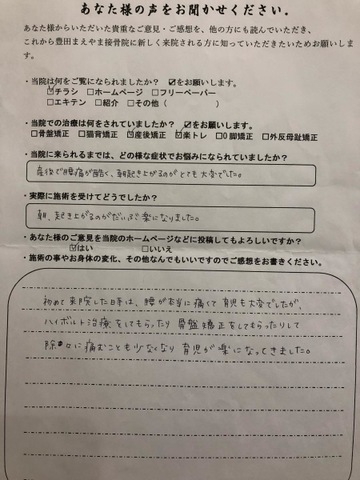 あなた様の声をお聞かせください。
あなた様からいただいた貴重なご意見・ご感想を、他の方にも読んでいただき、
これから豊田まえやま接骨院に新しく来院される方に知っていただきたいためお願いします。
・当院は何をご覧になられましたか？ ☑をお願いします。
☑チラシ □ホームページ □フリーペーパー
□エキテン □紹介 □その他（ ）
・当院での治療は何をされていましたか？ ☑をお願いします。
□骨盤矯正 □猫背矯正 ☑産後矯正 ☑楽トレ □O脚矯正 □外反母趾矯正
・当院に来られるまでは、どの様な症状でお悩みになられていましたか？
産後で腰痛が酷く、朝起き上がるのがとても大変でした。
・実際に施術を受けてどうでしたか？
朝、起き上がるのがだいぶ楽になりました。
・あなた様のご意見を当院のホームページなどに投稿してもよろしいですか？
☑はい □いいえ
・施術の事やお身体の変化、その他なんでもいいですのでご感想をお書きください。
初めて来院した日は、腰が本当に痛くて育児も大変でしたが、
ハイボルト治療をしてもらったり骨盤矯正をしてもらったりして
除々に痛むことも少なくなり育児が楽になってきました。